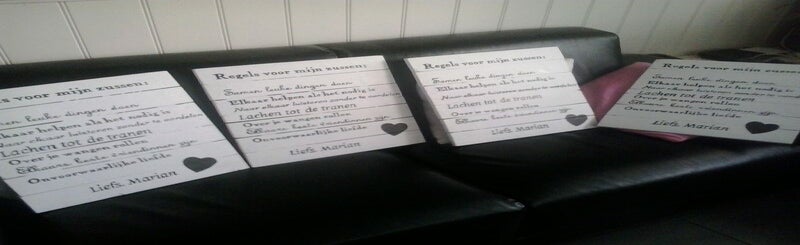 ls voor mijn zussen:
leuke dingen doen
kaar helpen als het nodig is
elkaar luisteren zonder te oordelen
Lachen tot de tranen
Over je wangen rollen
Elkaars beste vriendinnen zijn
Onvoorwaardelijke liefde
Liefs, Marian
Regels voor mijn zussen:
Samen leuke dingen doen
Elkaar helpen als het nodig is
Naar elkaar luisteren zonder te oordelen
Lachen tot de tranen
Over je wangen rollen
Elkaars beste vriendinnen zijn
Onvoorwaardelijke liefde
Liefs Marian
Regels voor mijn zussen:
Samen leuke dingen doen
Elkaar helpen als het nodig is
Naar elkaar luisteren zonder te oordelen
Lachen tot de tranen
Over je wangen rollen
Elkaars beste vriendinnen zijn
Onvoorwaardelijke liefde
Liefs Marian
Regels voor mijn zussen:
Samen leuke dingen doen
Elkaar helpen als het nodig is
Naar elkaar luisteren zonder te oordelen
Lachen tot de tranen
Over je wangen rollen
Elkaars beste vriendinnen zijn
Onvoorwaardelijke liefde
Liefs Marian